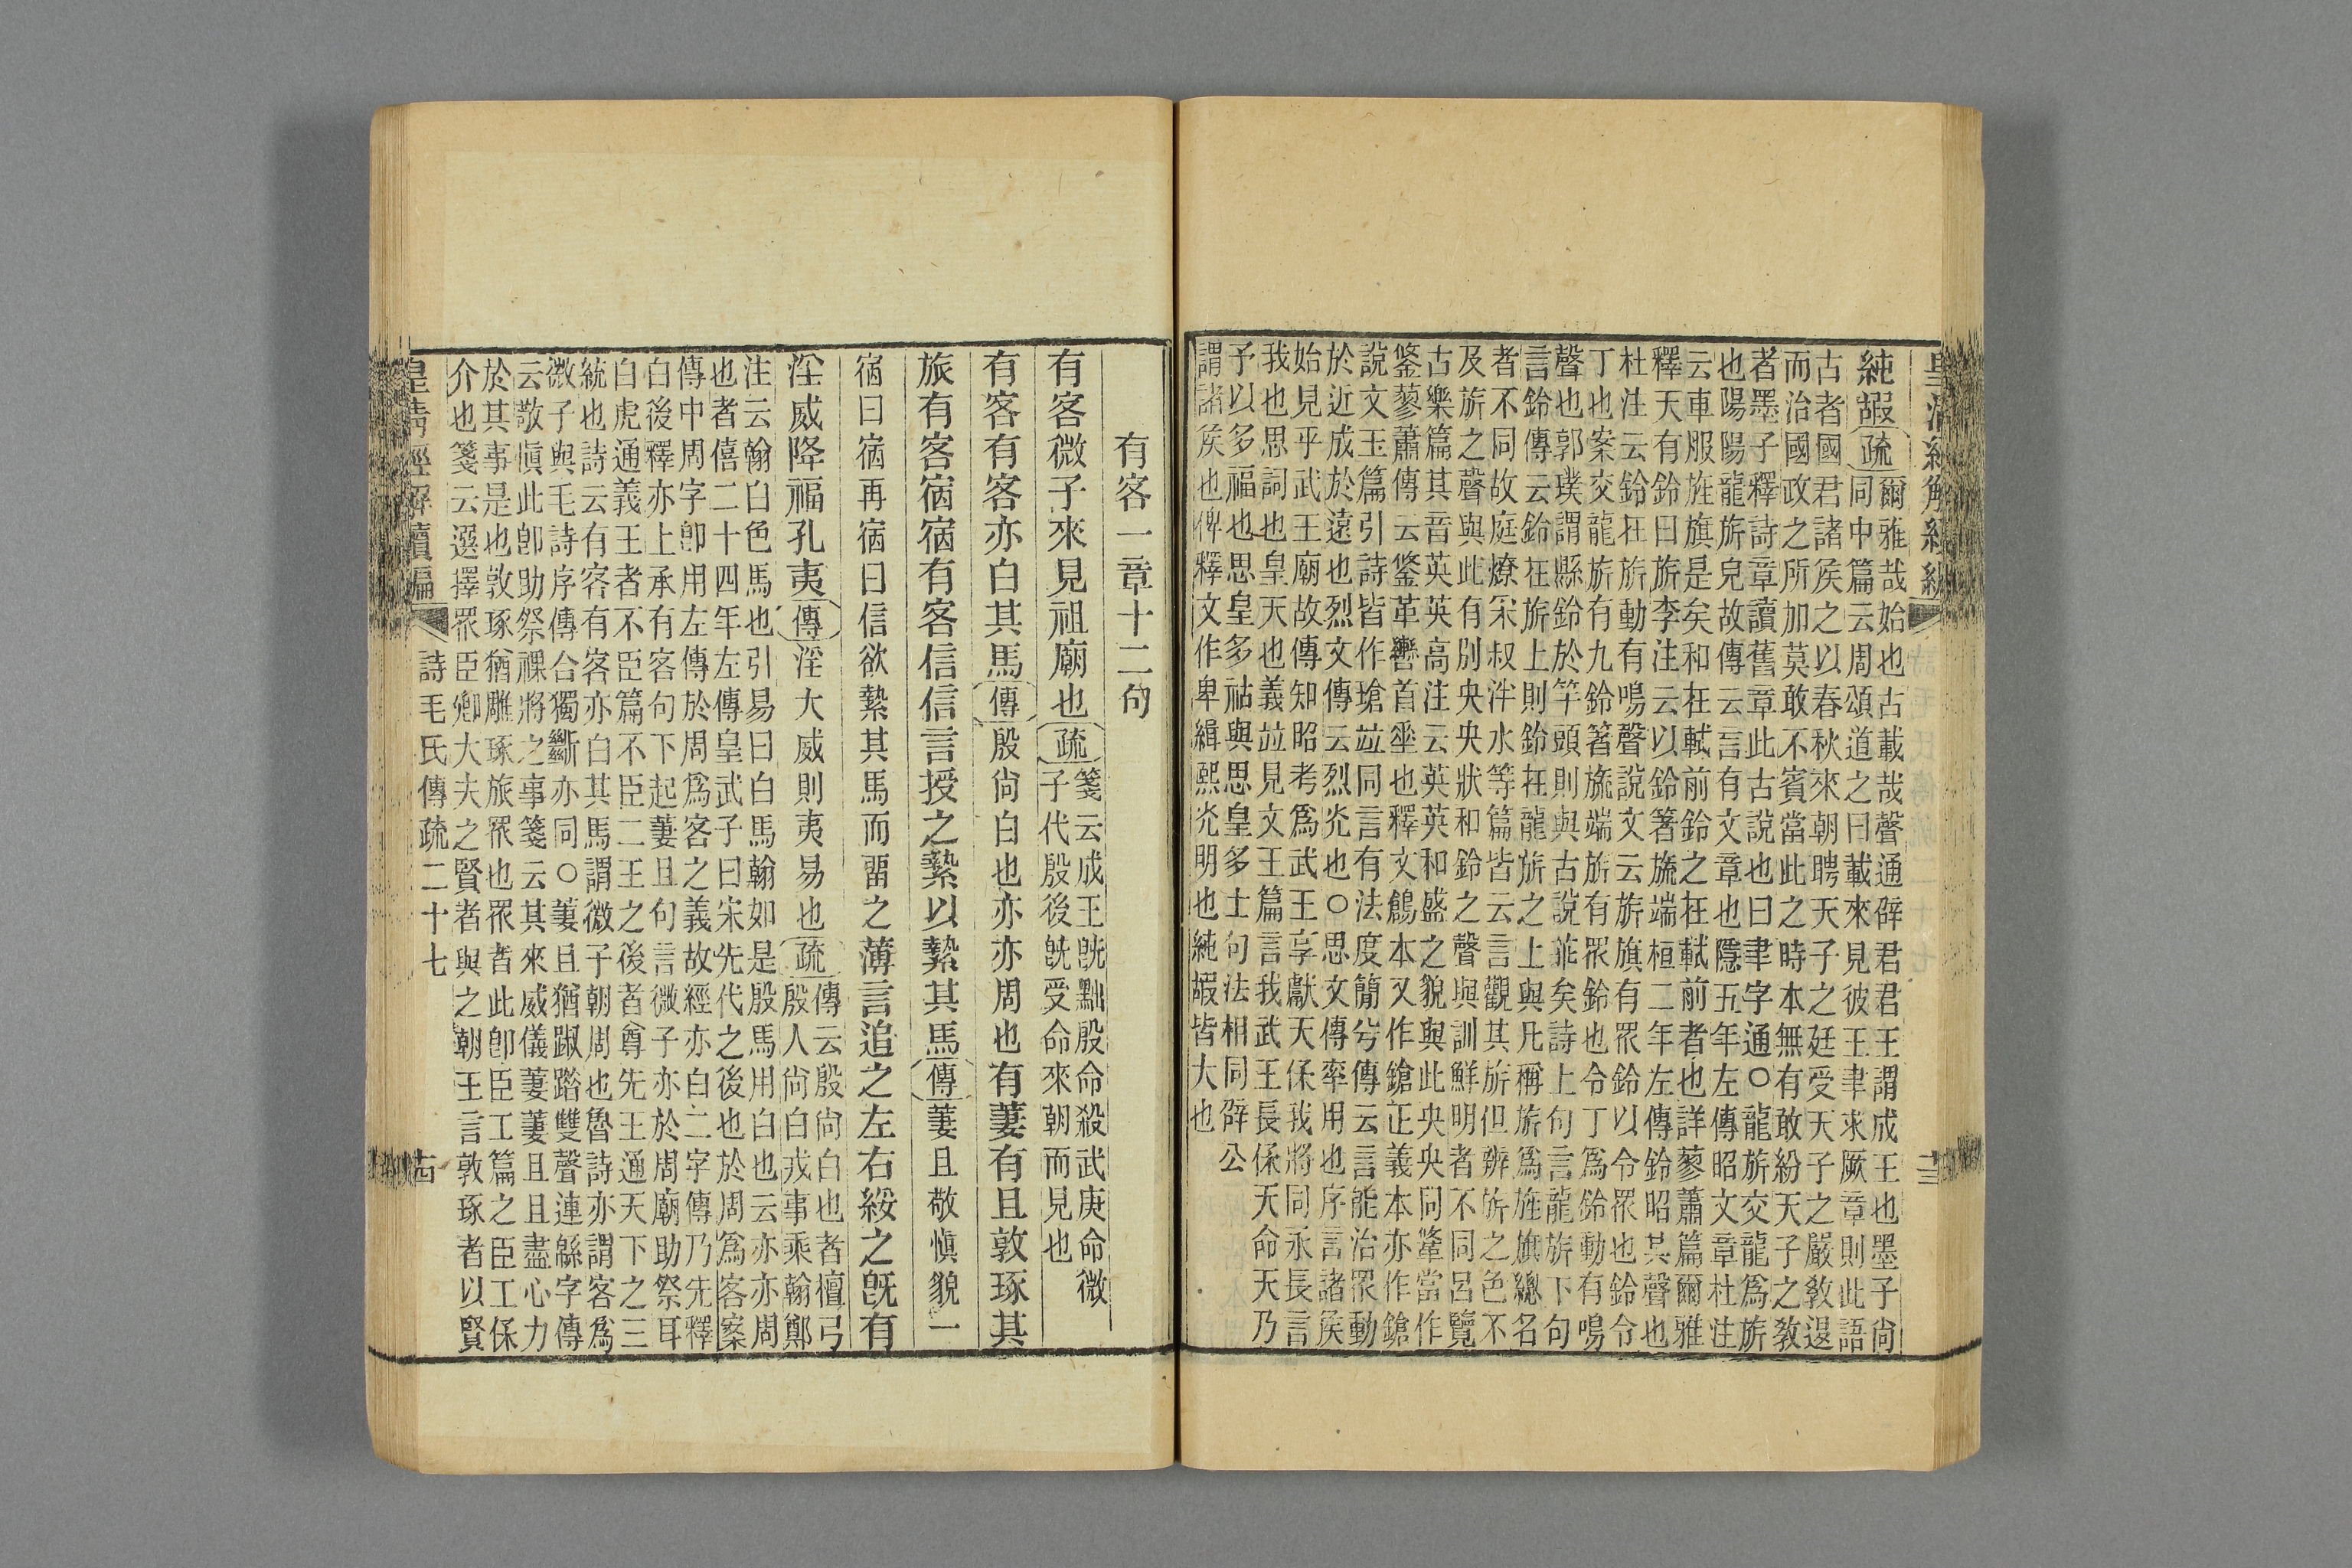 皇清經解續編
十三
純嘏疏
爾雅哉始也古載哉聲通辟君君王謂成王也墨子尙
同中篇云周頌道之曰載來見彼王聿求厥章則此語
古者國君諸矦之以春秋來朝聘天子之廷受天子之嚴敎退
而治國政之所加莫敢不賓當此之時本無有敢紛天子之敎
者墨子釋詩章讀舊章此古說也曰聿字通○龍旂交龍爲旂
也陽陽龍旂皃故傳云言有文章也隱五年左傳昭文章杜注
云車服旌旗是矣和在軾前鈴之在軾前者也詳蓼蕭篇爾雅
釋天有鈴曰旂李注云以鈴著旒端桓二年左傳鈴昭其聲也
杜注云鈴在旂動有鳴聲說文云旂旗有眾鈴以令眾也鈴令
丁也案交龍旂有九鈴著旒端旂有眾鈴也令丁爲鈴動有鳴
聲也郭璞謂縣鈴於竿頭則與古說乖矣詩上句言龍旂下句
言鈴傳云鈴在旂上則鈴在龍旂之上與凡稱旂爲旌旗總名
者不同故庭燎采叔泮水等篇皆云言觀其旂但辨旂之色不
及旂之聲與此有別央央狀和鈴之聲與訓鮮明者不同呂覽
古樂篇其音英英高注云英英和盛之貌與此央央同鞗當作
鋚蓼蕭傳云鋚革轡首垂也釋文鶬本又作鎗正義本亦作鎗
說文玉篇引詩皆作瑲竝同言有法度簡兮傳云言能治眾動
於近成於遠也烈文傳云烈光也○思文傳率用也序言諸矦
始見乎武王廟故傳知昭考爲武王享獻天保我將同永長言
我也思詞也皇天也義竝見文王篇言我武王長保天命天乃
予以多福也思皇多祜與思皇多士句法相同辟公
謂諸矦也俾釋文作卑緝熙光明也純嘏皆大也
有客一章十二句
有客微子來見祖廟也疏
箋云成王旣黜殷命殺武庚命微
子代殷後旣受命來朝而見也
有客有客亦白其馬傳殷尙白也亦亦周也有萋有且敦琢其
旅有客宿宿有客信信言授之縶以縶其馬傳萋且敬愼貌一
宿曰宿再宿曰信欲縶其馬而畱之薄言追之左右綏之旣有
淫威降福孔夷傳淫大威則夷易也疏
傳云殷尙白也者檀弓
殷人尙白戎事乘翰鄭
注云翰白色馬也引易曰白馬翰如是殷馬用白也云亦亦周
也者僖二十四年左傳皇武子曰宋先代之後也於周爲客案
傳中周字卽用左傳於周爲客之義故經亦白二字傳乃先釋
白後釋亦上承有客句下起萋且句言微子亦於周廟助祭耳
白虎通義王者不臣篇不臣二王之後者尊先王通天下之三
統也詩云有客有客亦白其馬謂微子朝周也魯詩亦謂客爲
微子與毛詩序傳合獨斷亦同○萋且猶踧踖雙聲連緜字傳
云敬愼此卽助祭祼將之事箋云其來威儀萋萋且且盡心力
於其事是也敦琢猶雕琢旅眾也眾者此卽臣工篇之臣工保
介也箋云選擇眾臣卿大夫之賢者與之朝王言敦琢者以賢
皇淸經解續編
詩毛氏傳疏二十七
十四